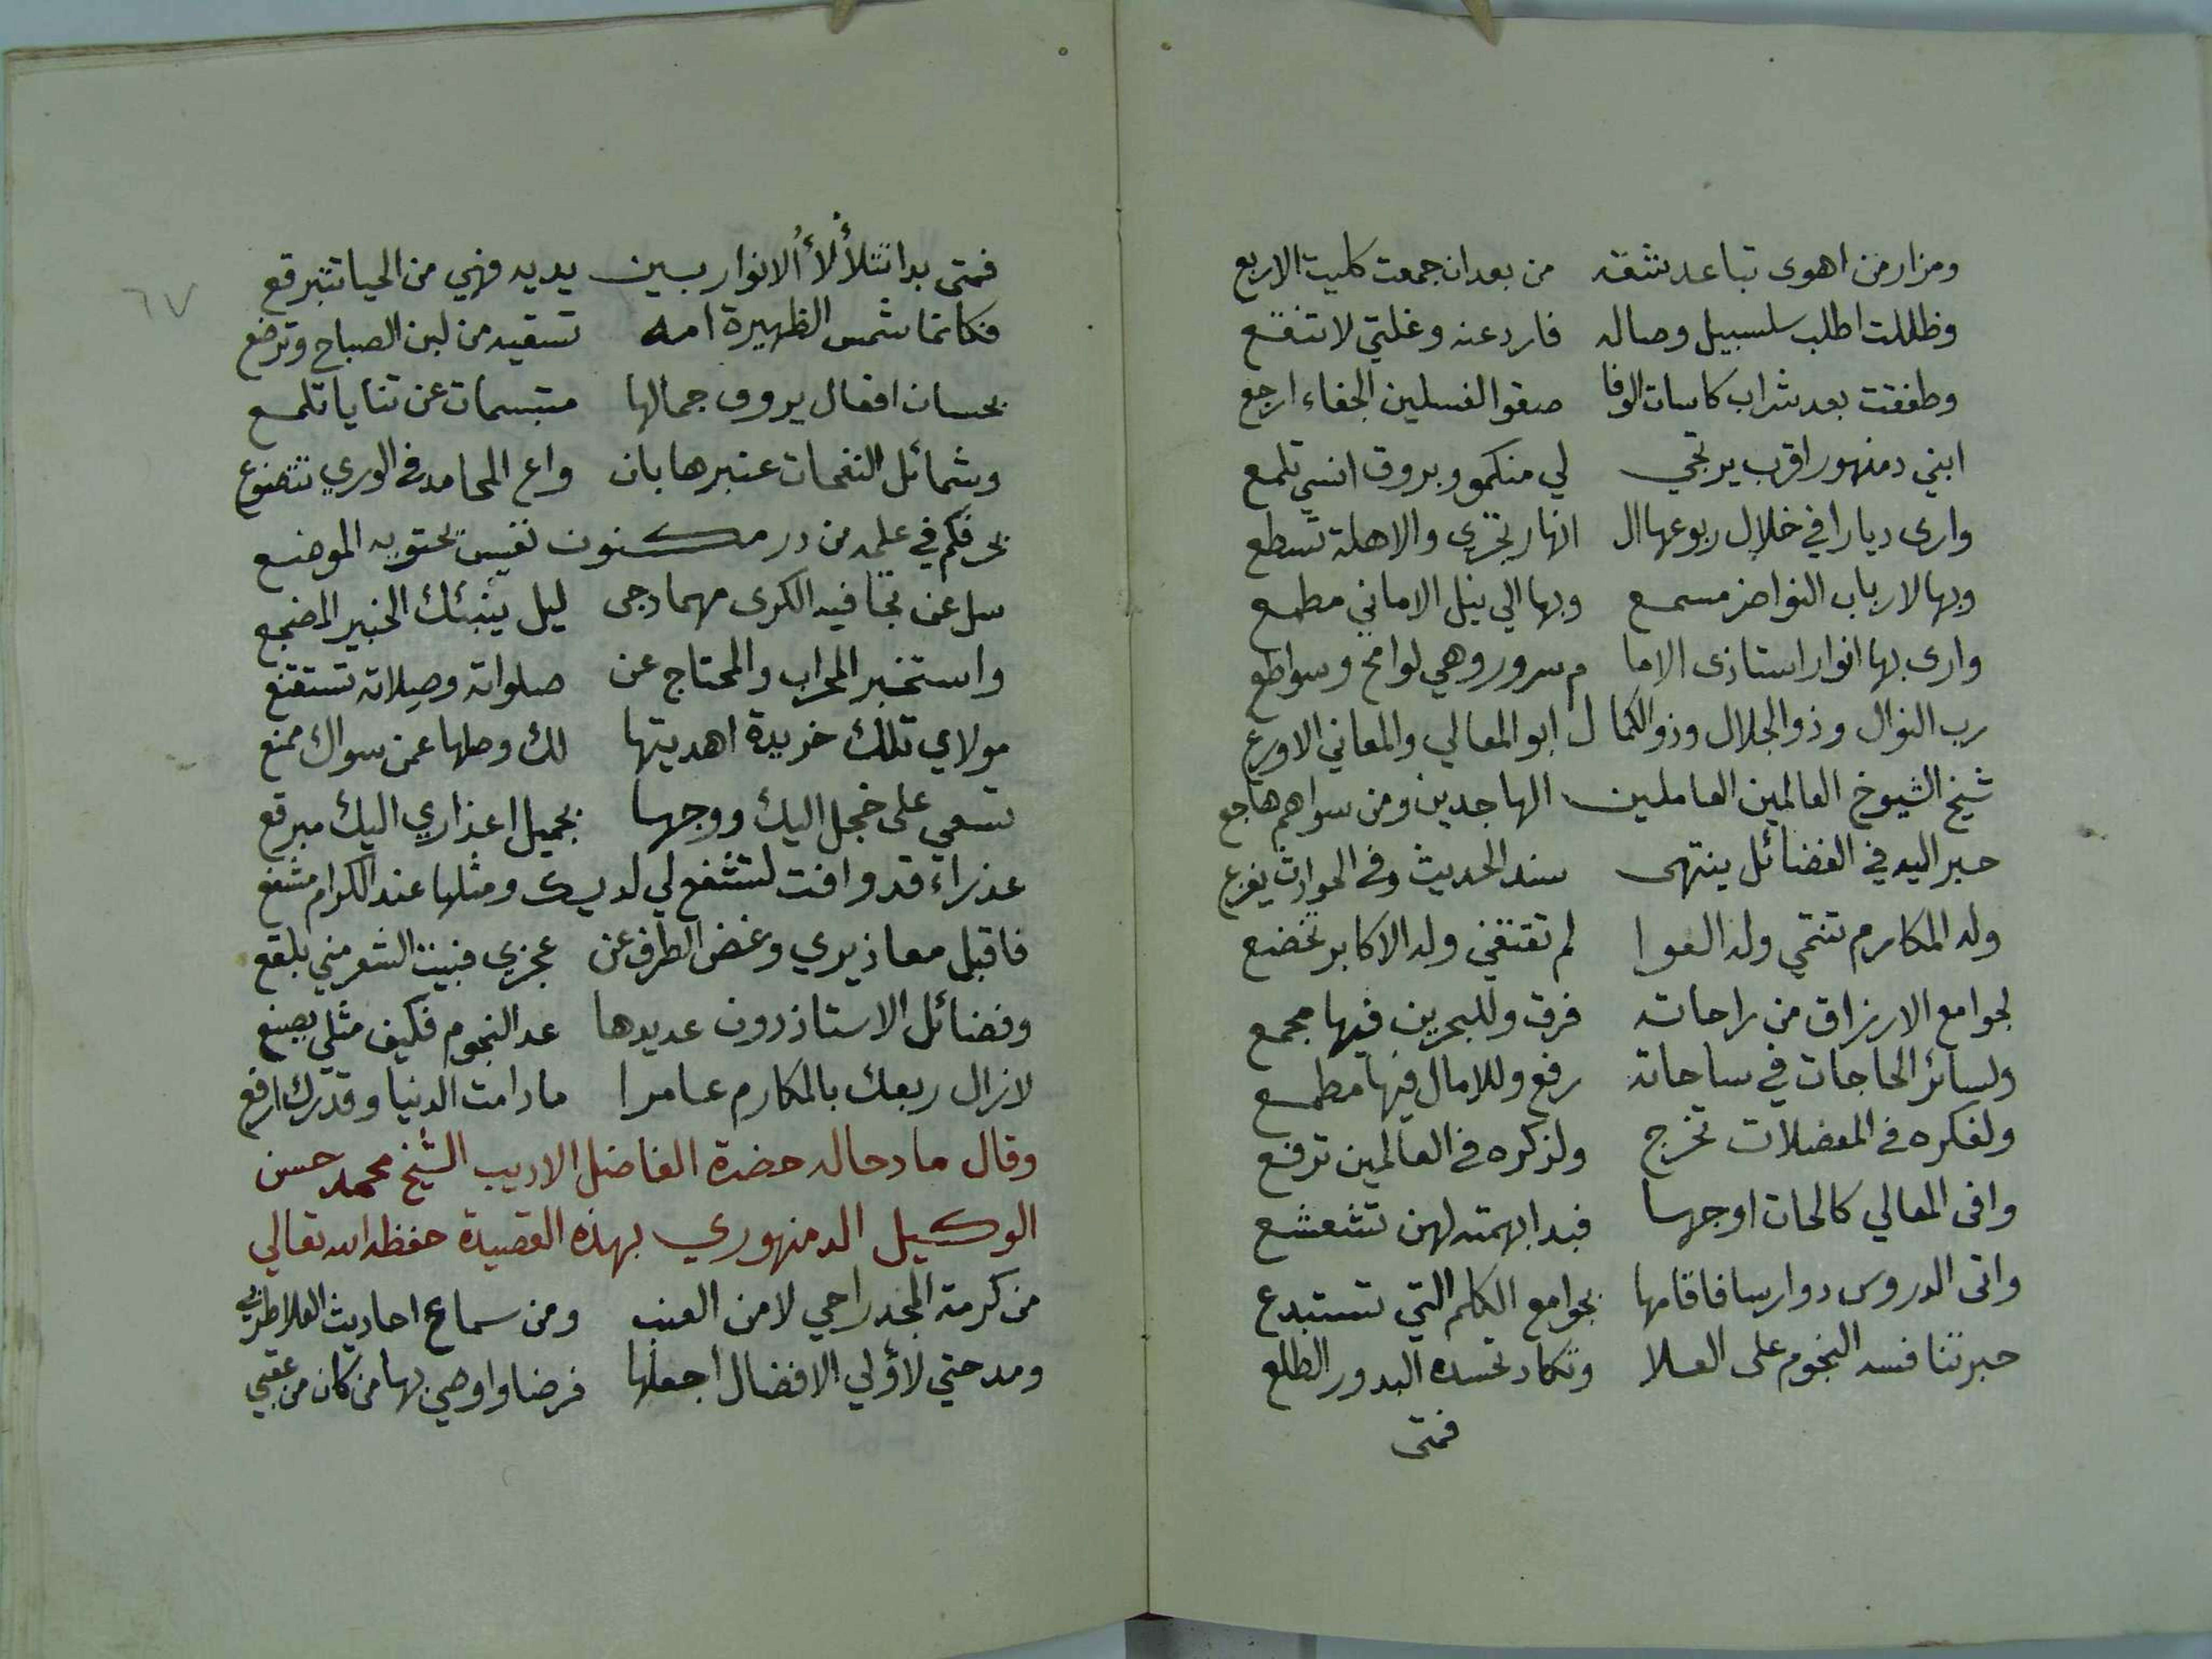 ومزار من اهوى تباعد شقة من بعد ان جمعت كليت الاربع
وظللت اطلب سلسبيل وصاله فارد عنه وغلتي لا تنقع
وطفقت بعد شراب كاسات الوفا صفوا لغسلين الجفاء ارجع
ابني دمنهور اقرب يرتجي لي منكمو وبروق انسي تلمع
وارى ديارا في خلال ربوعها ال انهار تجري والاهلة تسطع
وبها لارباب النواضر مسمع وبها الي نيل الاماني مطمع
وارى بها انوار استاذى الاما م سرور وهي لوامح وسواطع
رب النوال وذو الجلال وذو الكما ل ابو المعالي والمعاني الاورع
شيخ الشيوخ العالمين العاملين الهاجدين ومن سواهم هاجع
حبر اليه في الفضائل ينتهى سند الحديث وفي الحوادث يفزع
وله المكارم تنتمي وله العوا لم تقتفي وله الاكابر تخضع
لجوامع الارزاق من راحاته فرق وللبحرين فيها مجمع
ولسائر الحاجات في ساحاته رفع وللامال فيها مطمع
ولفكره في المعضلات تخرج ولذكره في العالمين ترفع
وافى المعالي كالحات اوجها فبدا بهمته لهن تشعشع
واتى الدروس دوارسا فاقامها بجوامع الكلم التي تستبدع
حبر تنافسه النجوم على العلا وتكاد تحسده البدور الطلع
فمتى
٦٧
فمتى بدا تتلألأ الانوار بين يديه فهي من الحيا تتبرقع
فكانما شمس الظهيرة امه تسقيه من لبن الصباح وترضع
بحسان افعال يروق جمالها متبسمات عن ثنايا تلمع
وشمائل النفحات عنبرها بان واع المحامد في الوري تتضوع
بحر فكم في علمه من در مكنون نفيس يحتويه الموضع
سل عن تجافيه الكرى مهما دجى ليل ينبئك الخبير المضجع
واستخبر المحراب والمحتاج عن صلواته وصلاته تستقنع
مولاي تلك خريدة اهديتها لك وصلها عمن سواك ممنع
تسعي على خجل اليك ووجهها بجميل اعذاري اليك مبرقع
عذراء قد وافت لتشفع لي لديك ومثلها عند الكرام مشفع
فاقبل معاذيري وغض الطرف عن عجزي فبيت الشعر مني بلقع
وفضائل الاستاذ دون عديدها عد النجوم فكيف مثلي يصنع
لا زال ربعك بالمكارم عامرا ما دامت الدنيا وقدرك ارفع
وقال مادحا له حضرة الفاضل الاديب الشيخ محمد حسن
الوكيل الدمنهوري بهذه القصيدة حفظه الله تعالي
من كرمة المجد راحي لا من العنب ومن سماع احاديث العلا طربي
ومدحتي لأولي الافضال اجعلها فرضا واوصي بها من كان من عقبي